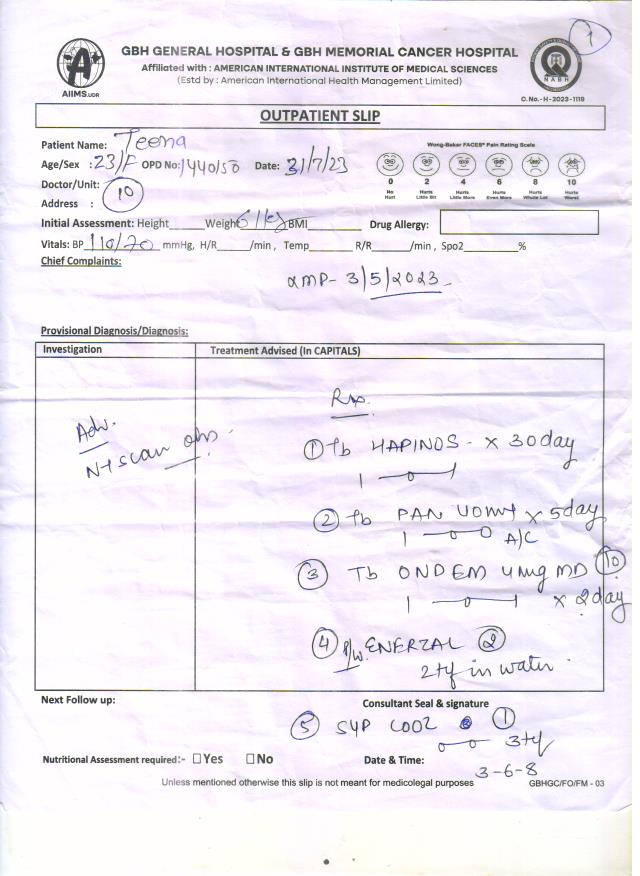 1
GBH GENERAL HOSPITAL & GBH MEMORIAL CANCER HOSPITAL
Affiliated with : AMERICAN INTERNATIONAL INSTITUTE OF MEDICAL SCIENCES
(Estd by : American International Health Management Limited)
AIIMS.UDR
NABH
C.No.-H-2023-1119
OUTPATIENT SLIP
Patient Name: Teena
Wong-Baker FACES® Pain Rating Scale
Age/Sex : 23/F OPD No: 1440150 Date: 31/7/23
0 2 4 6 8 10
No Hurt Hurts Little Bit Hurts Little More Hurts Even More Hurts Whole Lot Hurts Worst
Doctor/Unit: 10
Address :
Initial Assessment: Height Weight 61kg BMI Drug Allergy:
Vitals: BP 110/70 mmHg, H/R /min , Temp R/R /min , Spo2 %
Chief Complaints:
LMP- 3/5/2023
Provisional Diagnosis/Diagnosis:
Investigation Treatment Advised (In CAPITALS)
Adv.
NT scan obs.
Rx.
① Tb HAPINOS - x 30day
1 - 0 - 1
② Tb PAN VOMIT x 5day
1 - 0 - 0 A/C
③ Tb ONDEM 4mg MD 10
1 - 0 - 1 x 2day
④ P/w. ENERZAL ②
2tf in water
Next Follow up: Consultant Seal & signature
⑤ SYP COOL ①
3tf
Nutritional Assessment required:- ☐Yes ☐No Date & Time:
3-6-8
Unless mentioned otherwise this slip is not meant for medicolegal purposes GBHGC/FO/FM - 03